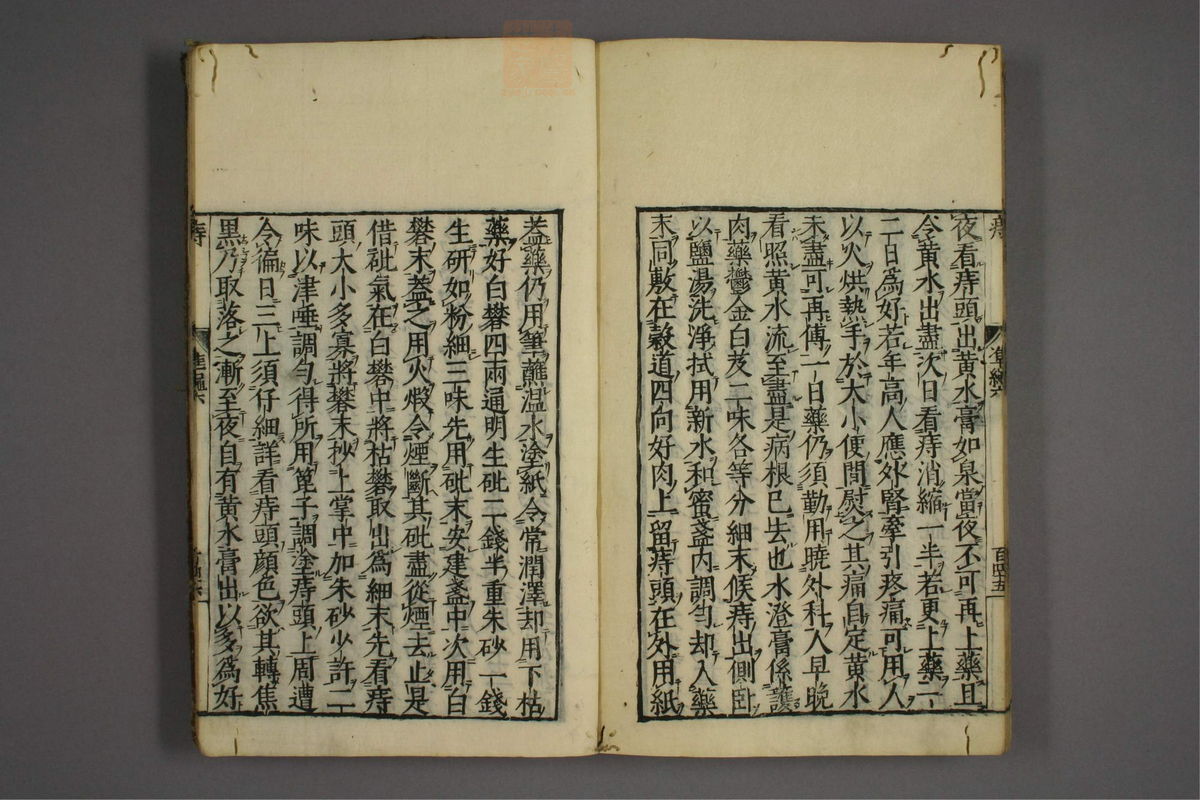 夜看痔頭出黄水膏如泉當夜不可再上藥且
令黄水出盡次日看痔消縮一半若更上藥一
二日爲好若年高人應外腎牽引疼痛可用人
以火烘熱手於大小便間熨之其痛自定黄水
未盡可再傅一日藥仍須勤用曉外科人早晚
看照黄水流至盡是病根已去也水澄膏係護
肉藥鬱金白芨二味各等分細末候痔出側臥
以鹽湯洗淨拭用新水和蜜盞内調勻却入藥
末同敷在穀道四向好肉上留痔頭在外用紙
蓋藥仍用筆蘸温水塗紙令常潤澤却用下枯
藥好白礬四兩通明生砒二錢半重朱砂一錢
生研如粉細三味先用砒末安建盞中次用白
礬末蓋之用火煆令煙斷其砒盡從煙去止是
借砒氣在白礬中將枯礬取出爲細末先看痔
頭大小多寡將礬末抄上掌中加朱砂少許二
味以津唾調勻得所用篦子調塗痔頭上周遭
令徧日三上須仔細詳看痔頭顔色欲其轉焦
黒乃取落之漸至夜自有黄水膏出以多爲好